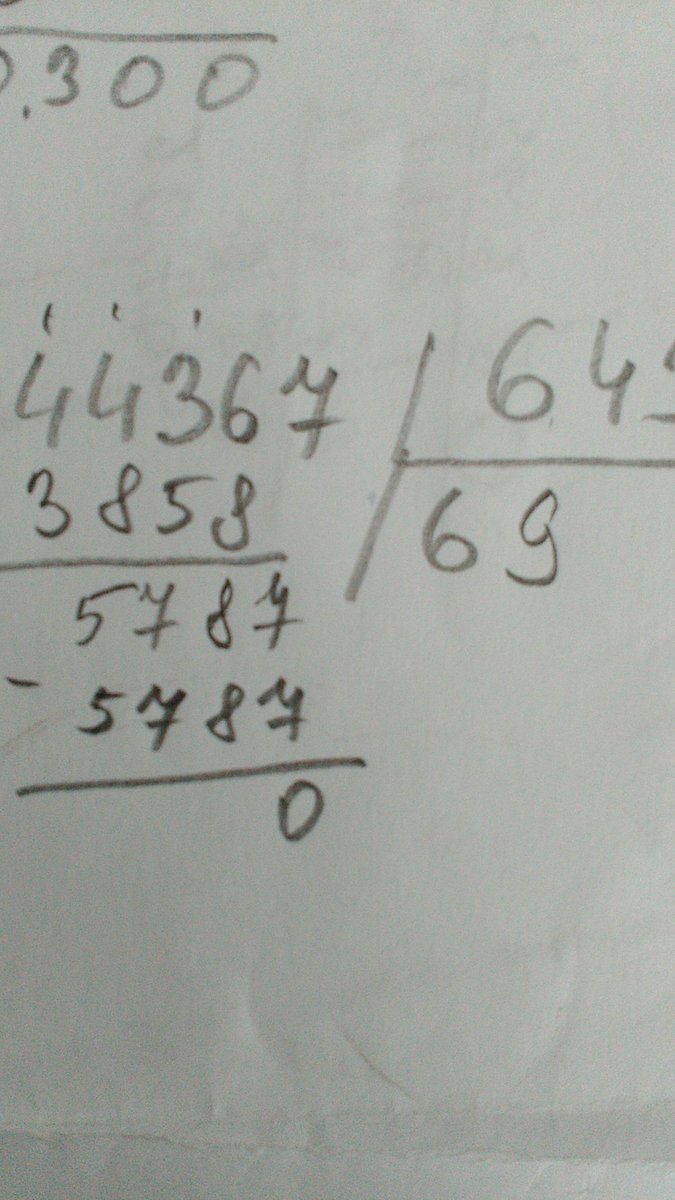 .300
44367 64
3858 69
5787
- 5787
0